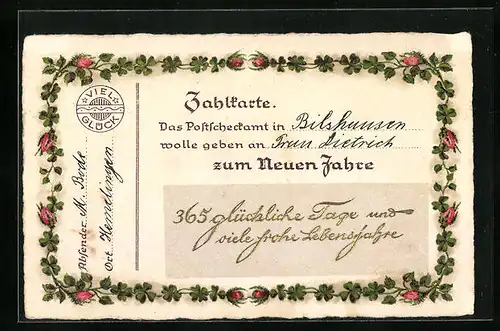 VIEL
GLÜCK
Zahlkarte.
Das Postscheckamt in Bilshausen
wolle geben an Frau Dietrich
zum Neuen Jahre
365 glückliche Tage und
viele frohe Lebensjahre
Absender: M. Borde
Ort: Hemelingen